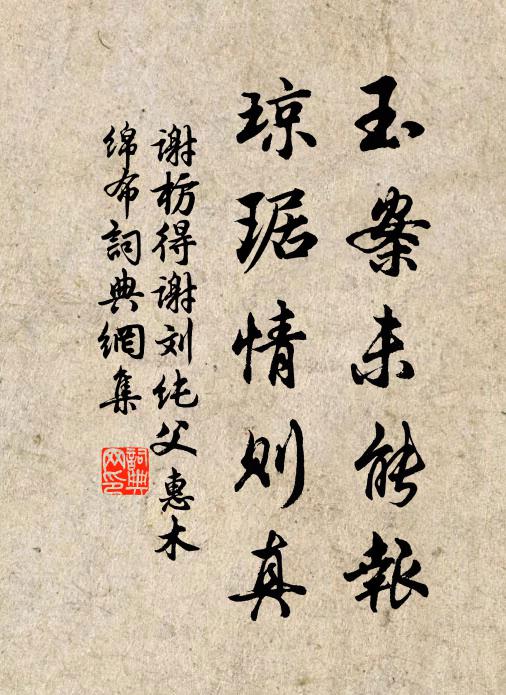 玉案未能報
琼琚情则真
谢枋得谢刘纯父惠木
绵布詞典網集
詞典
网印